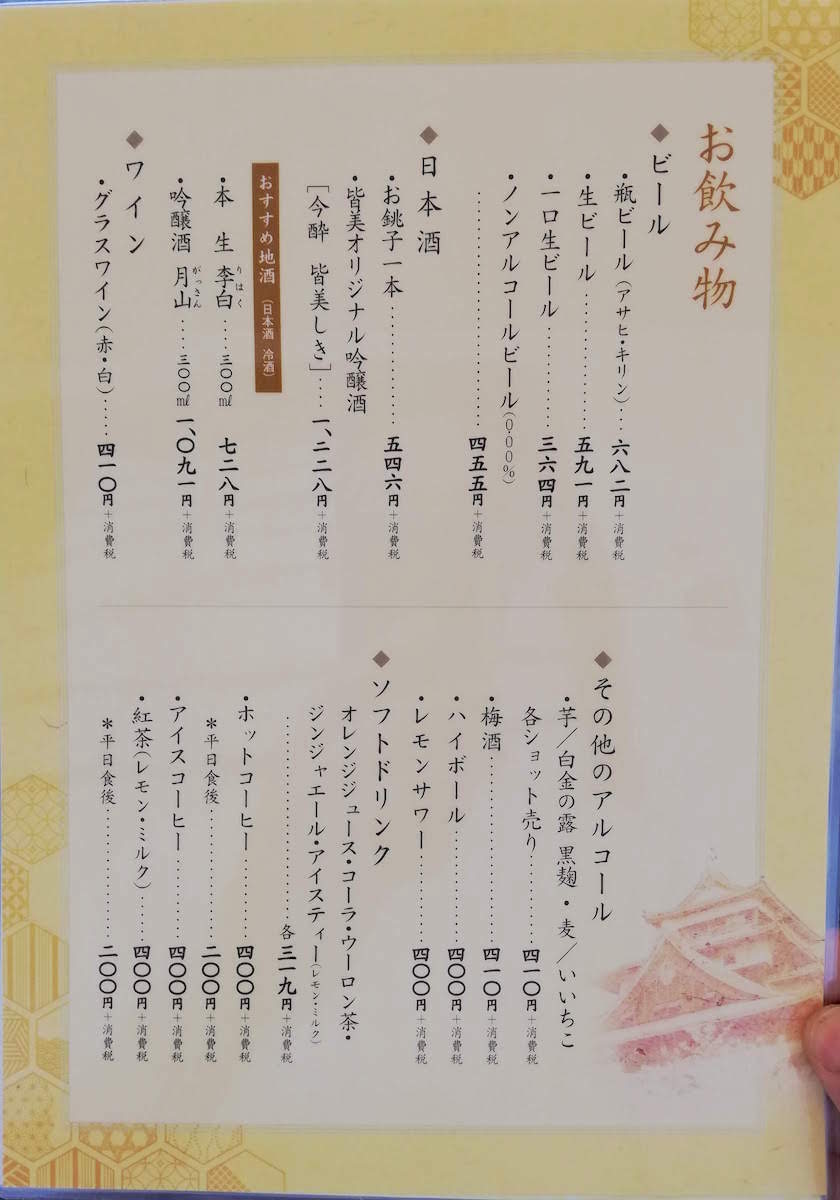 お飲み物
◆ビール
・瓶ビール（アサヒ・キリン）…六八二円＋消費税
・生ビール…………五九一円＋消費税
・一口生ビール…………三六四円＋消費税
・ノンアルコールビール（0.00％）
…………………四五五円＋消費税
◆日本酒
・お銚子一本…………五四六円＋消費税
・皆美オリジナル吟醸酒
［今酔　皆美しき］……一、二二八円＋消費税
おすすめ地酒（日本酒　冷酒）
・本　生　李白（りはく）……三〇〇㎖　七二八円＋消費税
・吟醸酒　月山（がっさん）……三〇〇㎖　一、〇九一円＋消費税
◆ワイン
・グラスワイン（赤・白）……四一〇円＋消費税
◆その他のアルコール
・芋／白金の露　黒麹・麦／いいちこ
各ショット売り…………四一〇円＋消費税
・梅酒………………四一〇円＋消費税
・ハイボール…………四〇〇円＋消費税
・レモンサワー…………四〇〇円＋消費税
◆ソフトドリンク
オレンジジュース・コーラ・ウーロン茶・
ジンジャエール・アイスティー（レモン・ミルク）
…………………各三一九円＋消費税
・ホットコーヒー…………四〇〇円＋消費税
＊平日食後…………二〇〇円＋消費税
・アイスコーヒー…………四〇〇円＋消費税
・紅茶（レモン・ミルク）……四〇〇円＋消費税
＊平日食後…………二〇〇円＋消費税